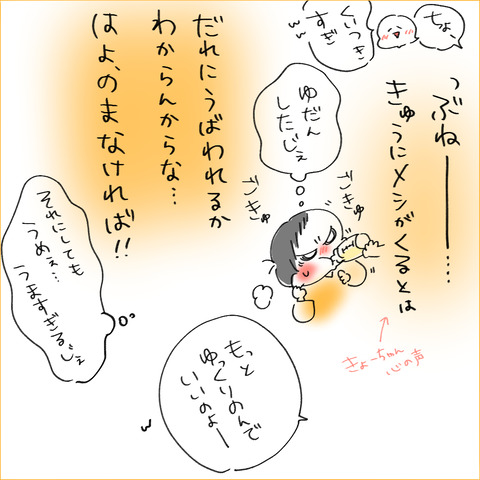 ちょー
くいつき
すぎ
ww
っぶねーー…
きゅうにメシがくるとは
きょーちゃん
心の声
ゆだん
したじぇ
ごきゅ
ごきゅ
だれにうばわれるか
わからんからな…
はよ、のまなければ!!
それにしても
うめぇ…
うますぎるじぇ
もっと
ゆっくりのんで
いいのよー
w